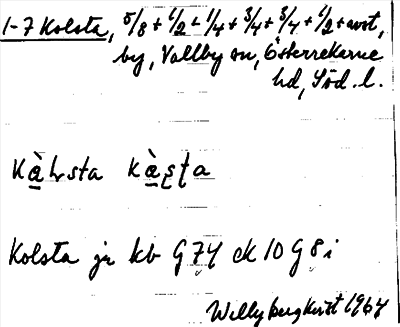 1-7 Kolsta, 5/8 + 1/2 + 1/4 + 3/4 + 3/4 + 1/2 + avst,
by, Vallby sn, Österrekarne
hd, Söd. l.
Kolsta jr kb G 74 ek 10 G 8 i
Willy Bergkvist 1964